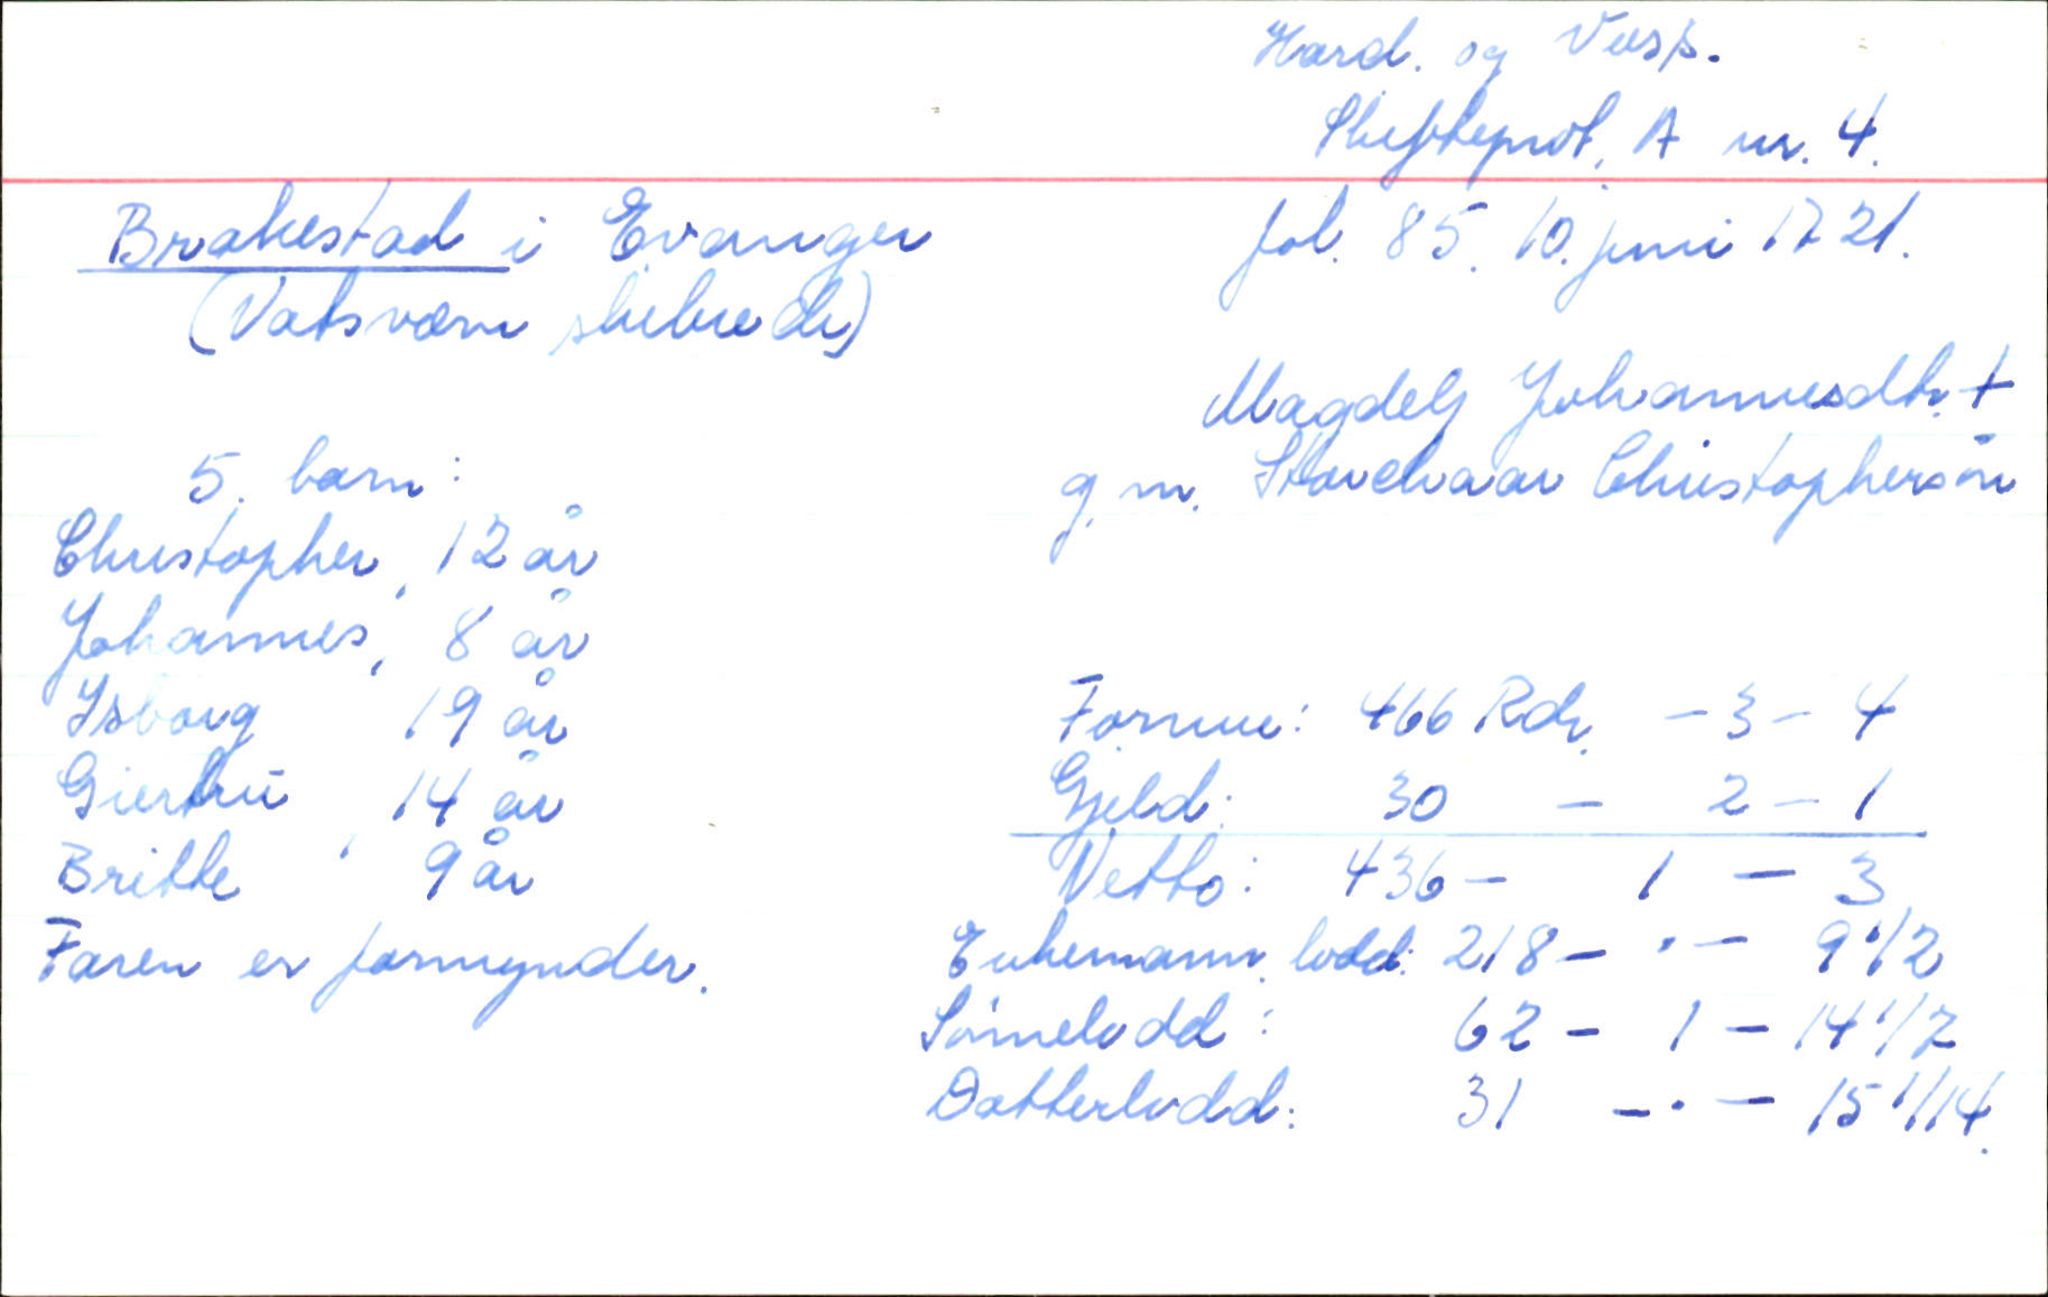 Hard. og Voss.
Skifteprot. A nr. 4.
Brakestad i Evanger
fol. 85. 10. juni 1721.
(Vatsværn skibrede)
Magdely Johannesdtr. +
g. m. Starchaar Christophersön
5. barn:
Christopher, 12 år
Johannes, 8 år
Isborg 19 år
Giertrū 14 år
Britte, 9 år
Faren er formynder.
Formue: 466 Rdr. - 3 - 4
Gjeld: 30 - 2 - 1
Netto: 436 - 1 - 3
Enkemann. lodd: 218 - · - 9 1/2
Sönnelodd: 62 - 1 - 14 1/7
Dotterlodd: 31 - · - 15 1/14.